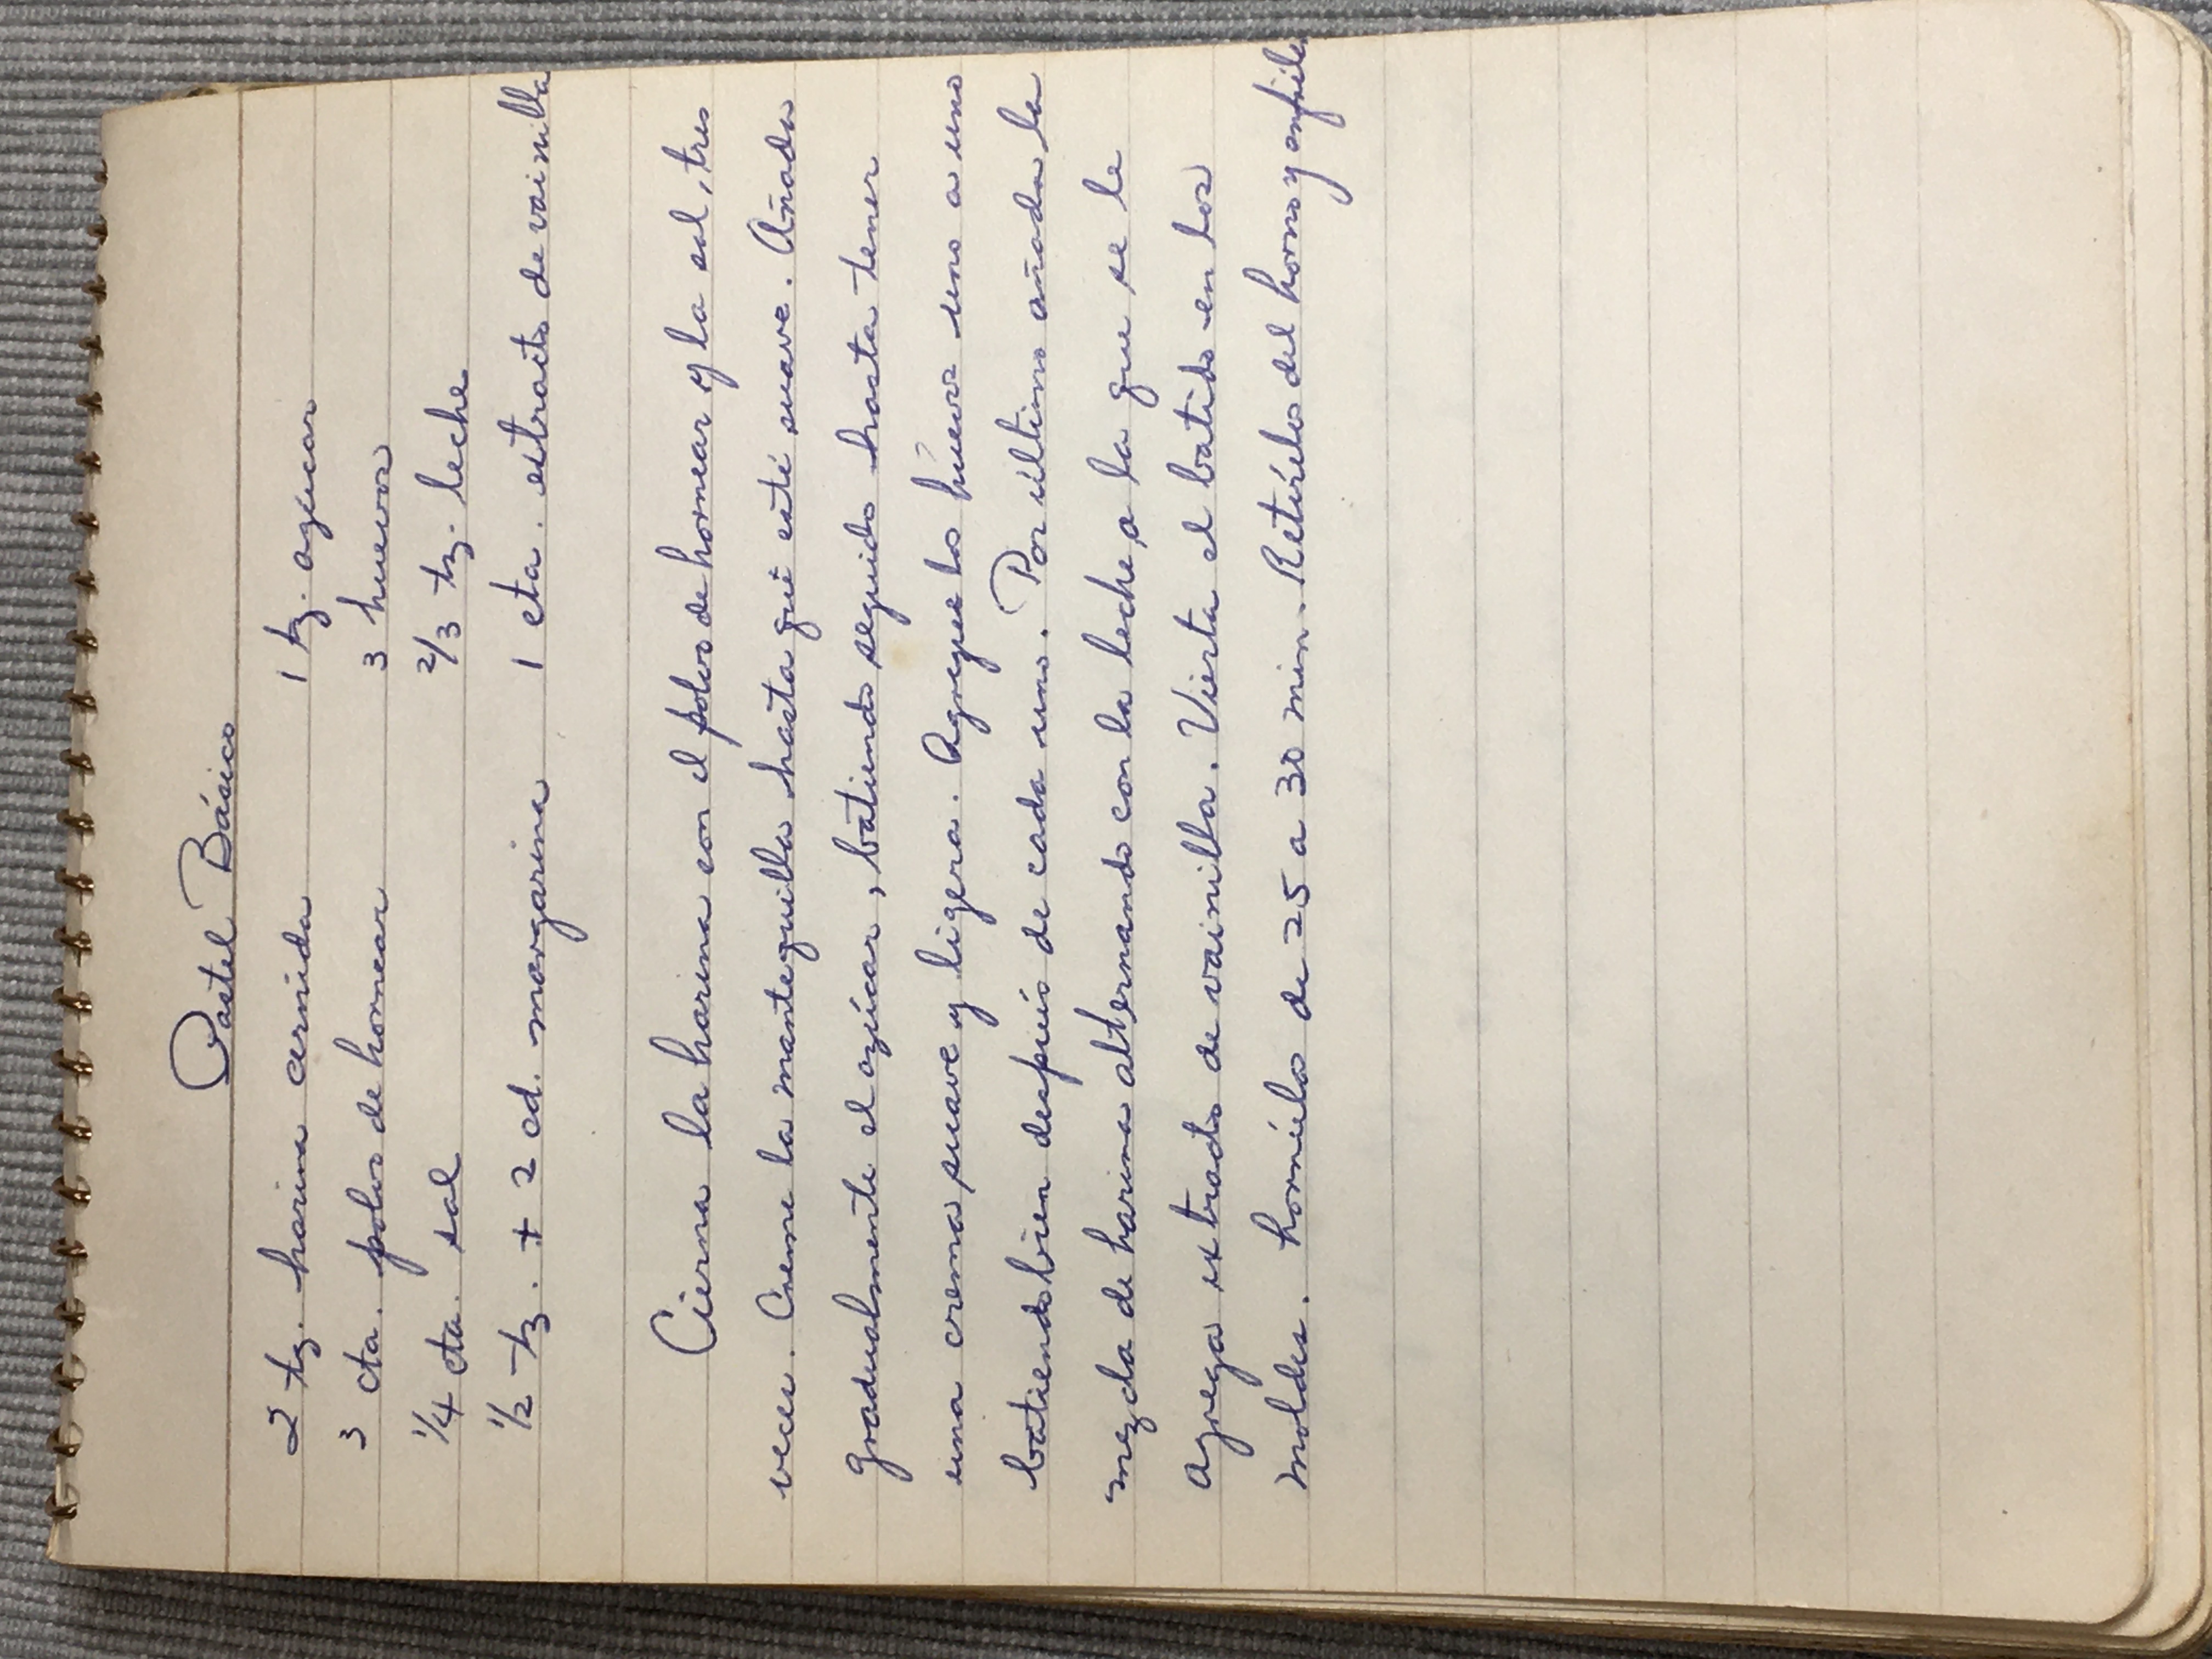 Pastel Básico
2 tz. harina cernida 1 tz. azúcar
3 cta. polvo de hornear 3 huevos
1/4 cta. sal 2/3 tz. leche
1/2 tz. + 2 cd. margarina 1 cta. extracto de vainilla
Cierna la harina con el polvo de hornear y la sal, tres
veces. Creme la mantequilla hasta que esté suave. Añada
gradualmente el azúcar, batiendo seguido hasta tener
una crema suave y ligera. Agregue los huevos uno a uno
batiendo bien después de cada uno. Por último añada la
mezcla de harina alternando con la leche, a la que se le
agrega extracto de vainilla. Vierta el batido en los
moldes. hornéelo de 25 a 30 min. Retírelos del horno y enfríe